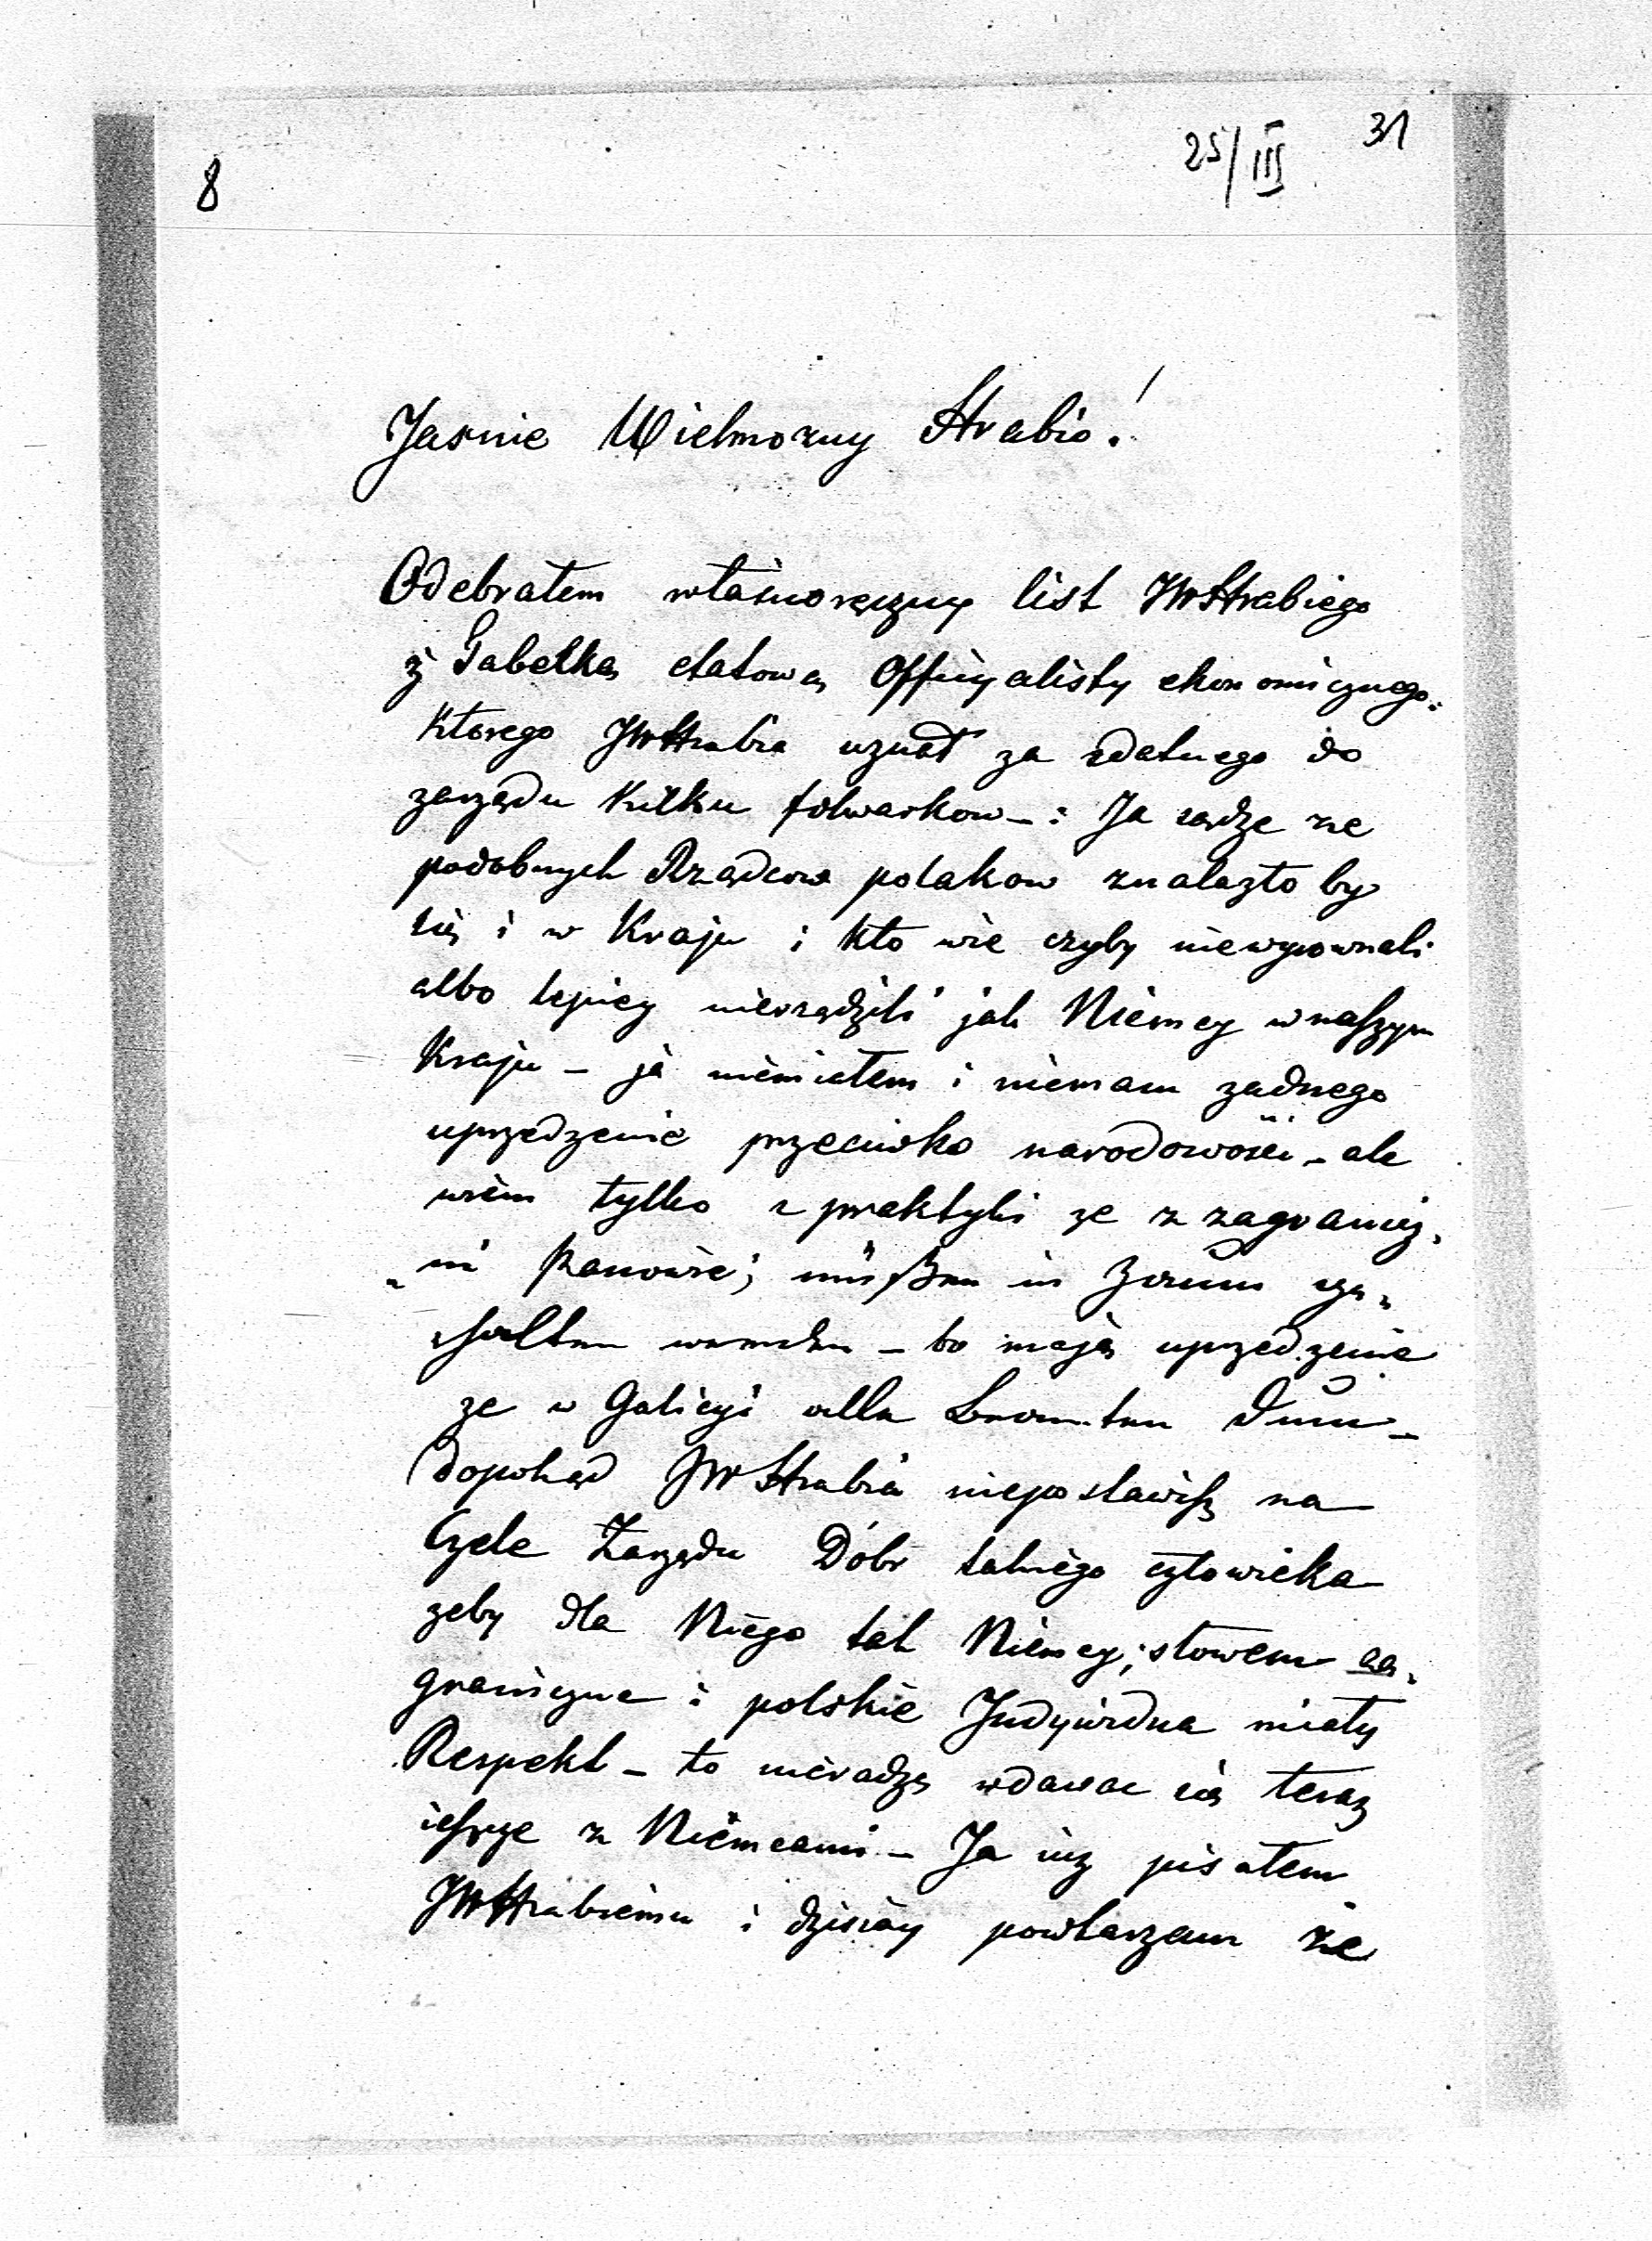 8
25/III
31
Jasnie Wielmozny Hrabio!
Odebrałem własnoręczny list JWHrabiego
z Tabelką etatową Officyalisty ekonomicznego
ktorego JWHrabia uznał za zdatnego do
zarządu kilku folwarkow - : Ja sądze ze
podobnych Rządcow polakow znalazło by
się i w Kraju i kto wie czyby niewyrownali
albo lepiey nierządzili jak Niemcy w naszym
Kraju - ja niemiałem i niemam zadnego
uprzedzenie przeciwko narodowosci - ale
wiem tylko z praktyki ze z zagranicz,
"ni Panowie; müßen in Zaum
- to mają uprzedzenie
ze w Galicyi alle dum -
dopokąd JWHrabia niepostawisz na
Czele Zarządu Dóbr takiego człowieka
zeby dla Niego tak Niemcy; słowem za,
graniczne i polskie Indywidua miały
Respekt - to nieradzę wdawac się teraz
ieszcze z Niemcami - Ja iuz pisałem
JWHrabiemu i dzisiay powtarzam że